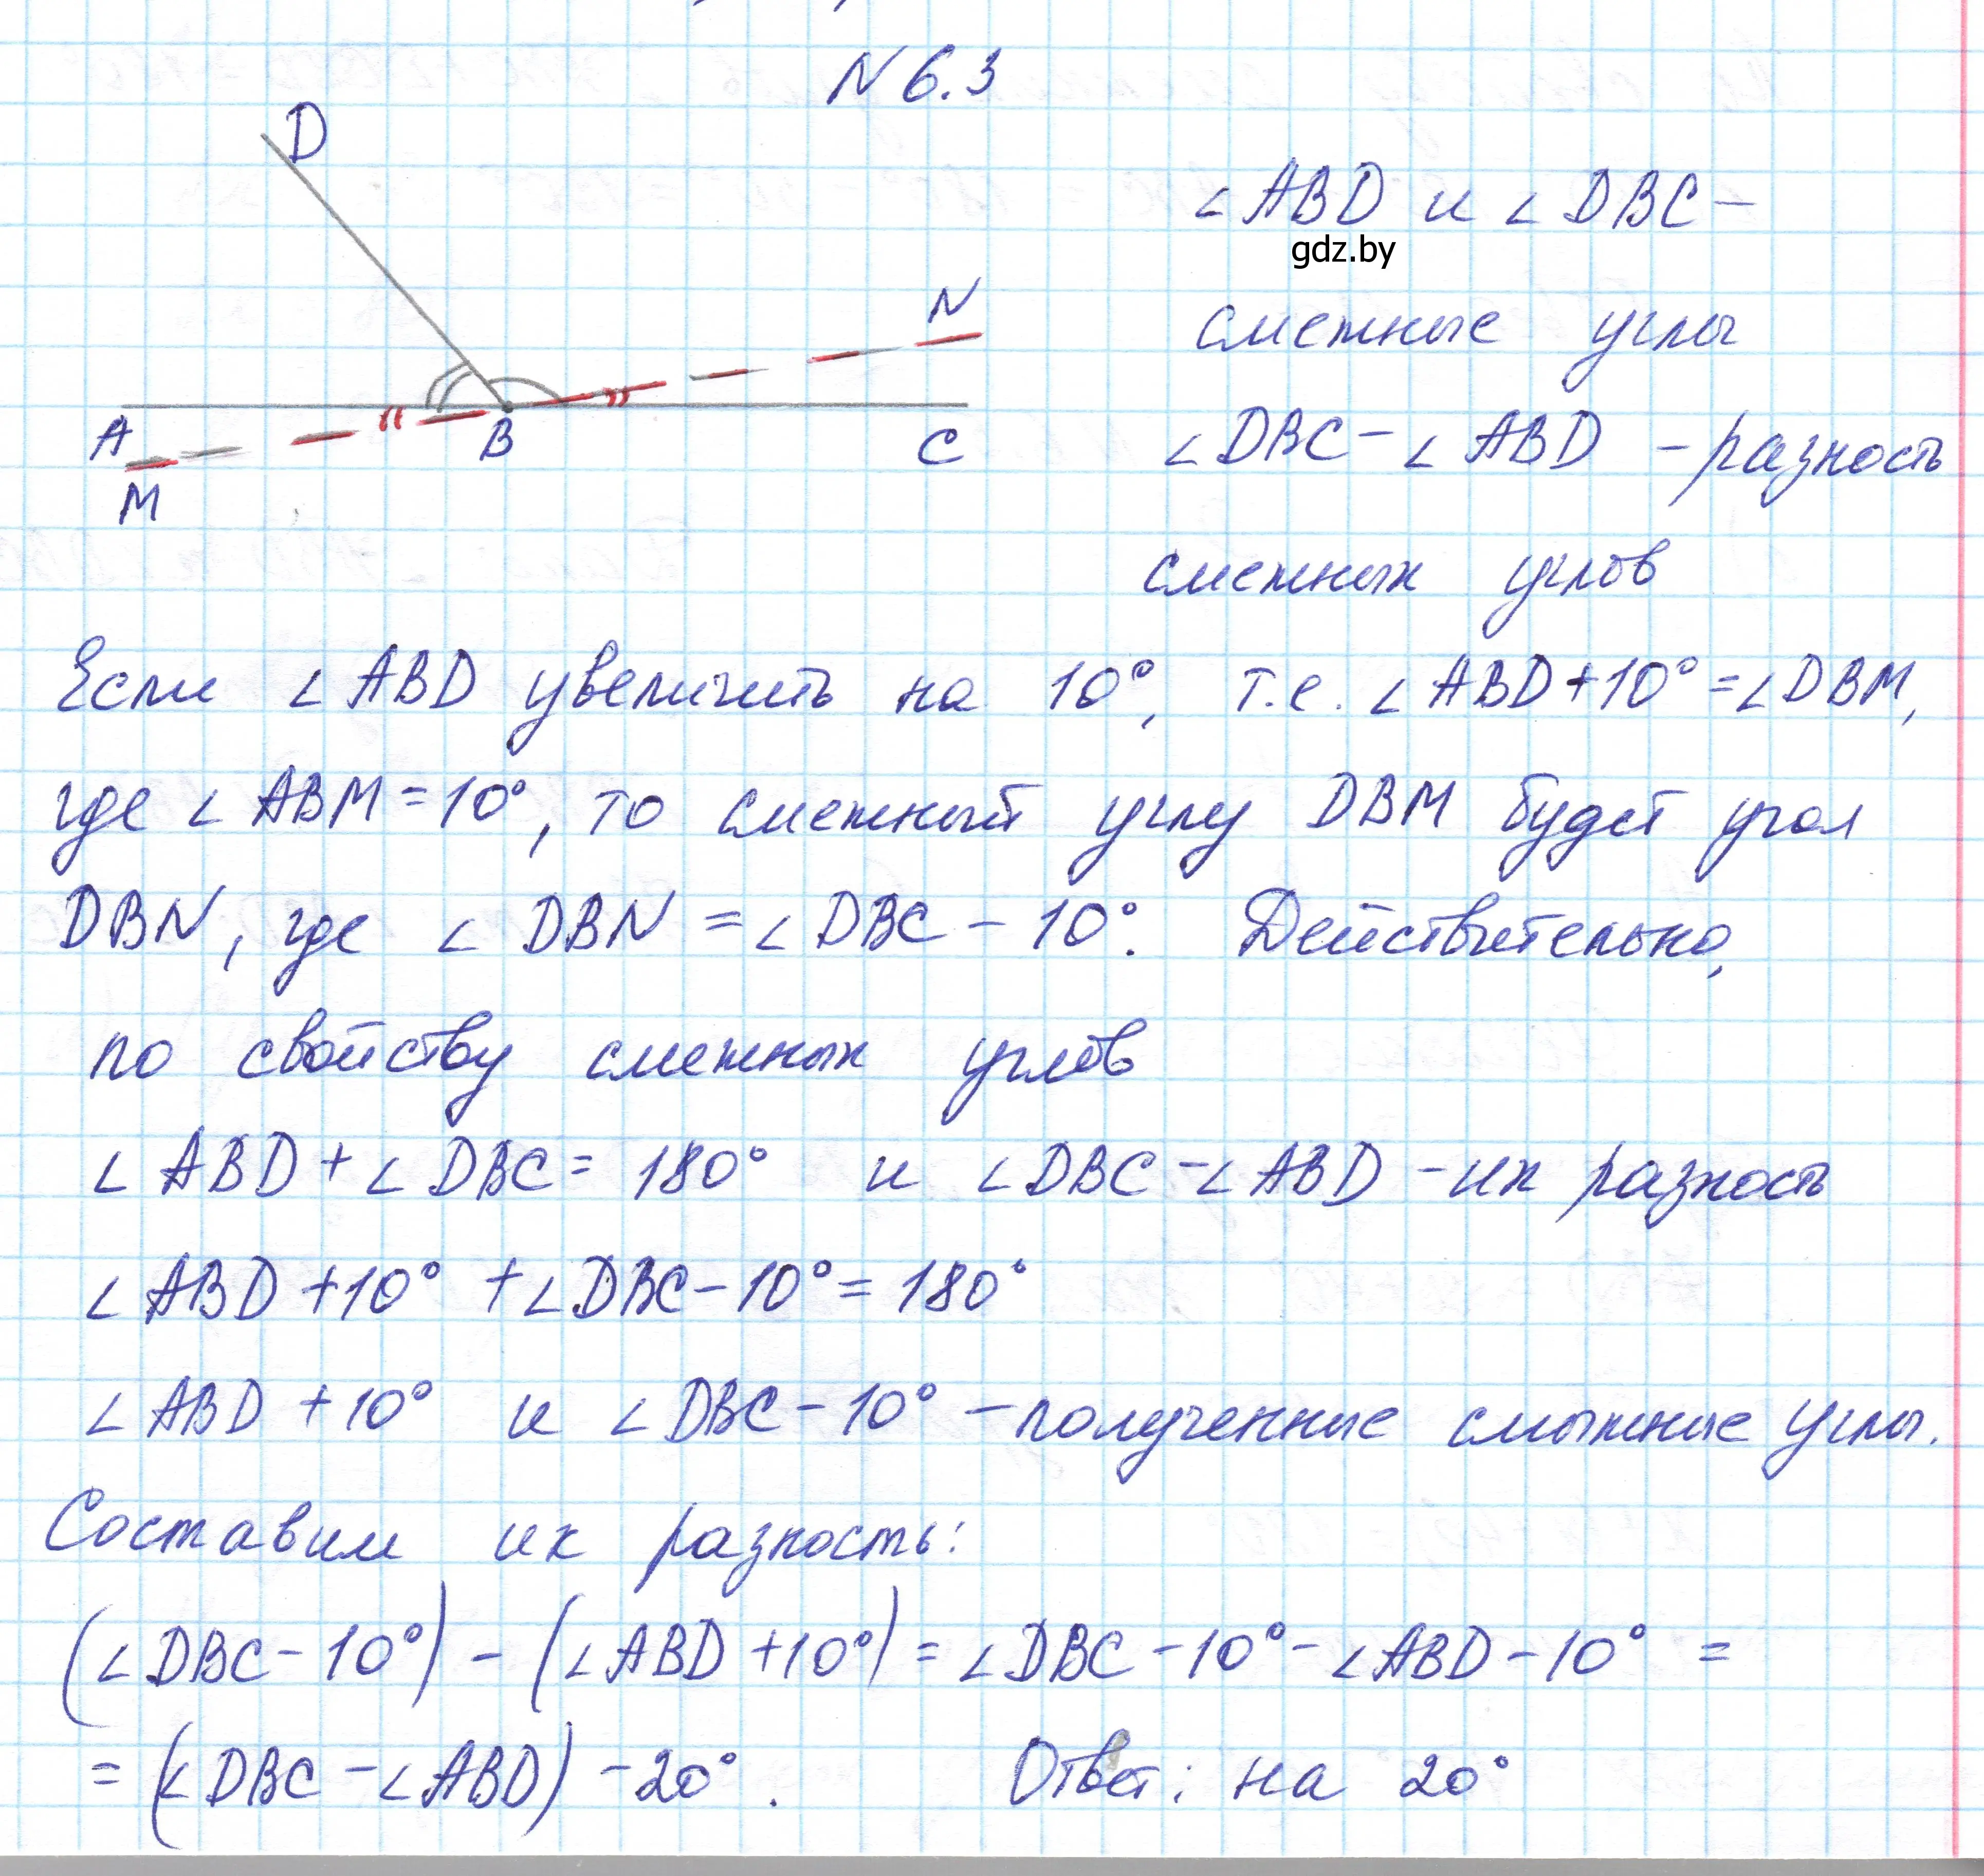 N 6.3
D
N
A
B
C
M
∠ABD и ∠DBC –
gdz.by
смежные углы
∠DBC – ∠ABD – разность
смежных углов
Если ∠ABD увеличить на 10°, т.е. ∠ABD + 10° = ∠DBM,
где ∠ABM = 10°, то смежный углу DBM будет угол
DBN, где ∠DBN = ∠DBC – 10°. Действительно,
по свойству смежных углов
∠ABD + ∠DBC = 180° и ∠DBC – ∠ABD – их разность
∠ABD + 10° + ∠DBC – 10° = 180°
∠ABD + 10° и ∠DBC – 10° – полученные смежные углы.
Составим их разность:
(∠DBC – 10°) – (∠ABD + 10°) = ∠DBC – 10° – ∠ABD – 10° =
= (∠DBC – ∠ABD) – 20°. Ответ: на 20°